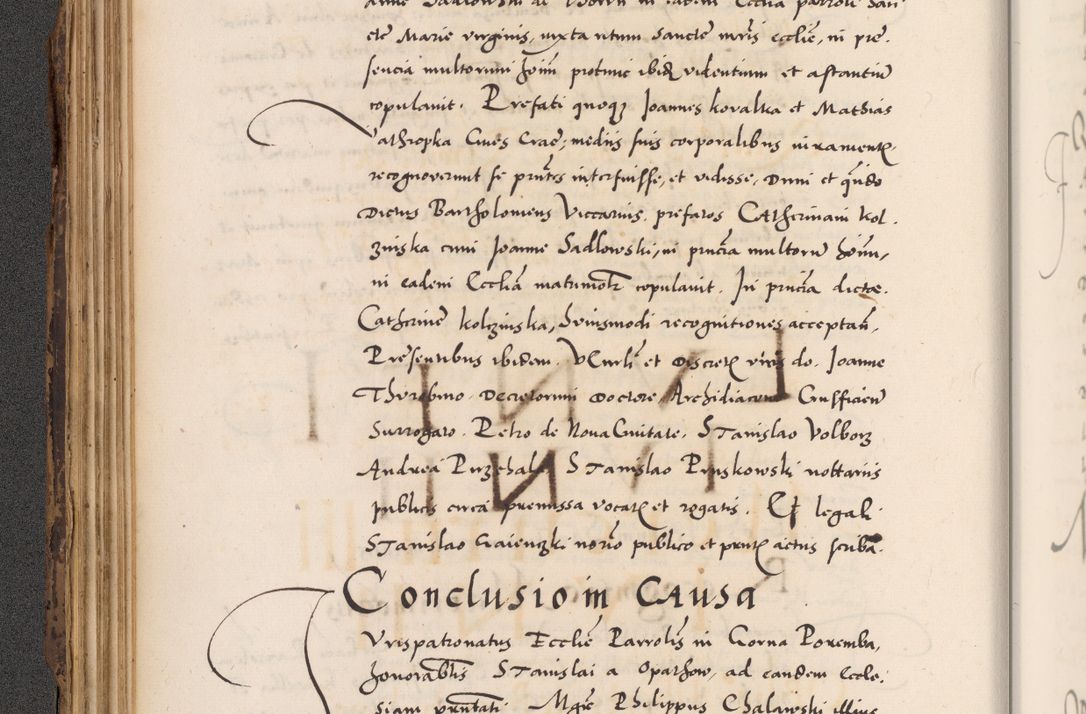 anne Sadlowski de in eadem Ecclia parrocli San
cte Marie virginis, iuxta ritum Sancte mris ecclie, in pre.
sencia multorum hoim protunc ibidem videntium et astantiu
copulauit. Prefati quoqz Joannes kovalka et Mathias
Pathropka Ciues Crac, mediis suis corporalibus iuramentis
recognoverunt se prntes interfuisse, et vidisse, Dum et qndo
Dictus Bartholomeus Viccarius, prefatos Catherinam kol.
zinska cum Joanne Sadlowski, in prncia multoru hoim,
in eadem Ecclia matrimolr copulauit. In prncia dictae.
Catherine kolczinska, huiusmodi recognitiones acceptan,
Presentibus ibidem. Vnrli et Discretis viris do. Joanne
Thurobino. Decretorum Doctore, Archidiacono Crusficien
Surrogato. Petro de Nova Civitate. Stanislao Volborz
Andrea Stanislao Pruskowski nottariis
publicis circa premissa vocatis et rogatis. Et legali
Stanislao Gaienczki norio publico et prntis actus scriba.
Conclusio in Causa
Jurispatronatus Ecclie Parrolis in Gorna Poremba,
honorablis Stanislai a Opathow, ad eandem Eccle.
siam prntati. Mgri Philippus Chalawski illius